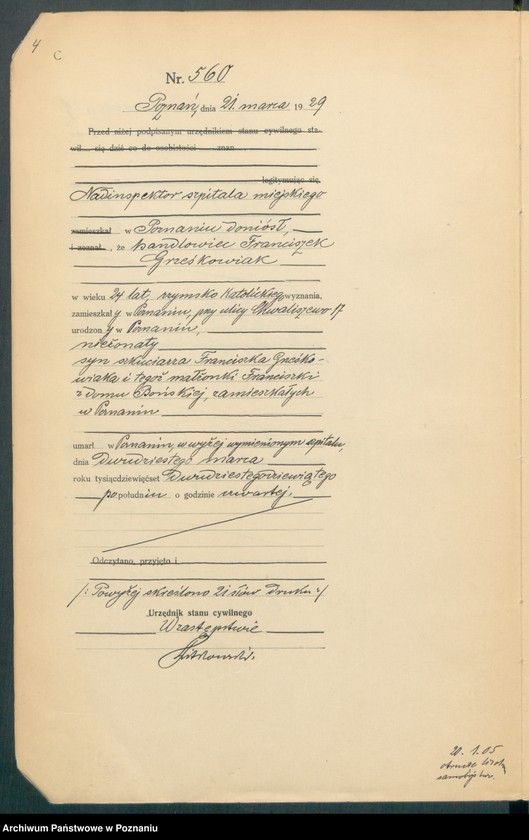 4
C
Nr. 560
Poznań, dnia 21. marca 1929
Przed niżej podpisanym urzędnikiem stanu cywilnego sta-
wił się dziś co do osobistości znan
legitymując się,
Nadinspektor szpitala miejskiego
zamieszkał w Poznaniu doniósł,
i zeznał, że handlowiec Franciszek
Grześkowiak
w wieku 24 lat, rzymsko katolickiego wyznania,
zamieszkały w Poznaniu, przy ulicy Chwaliszewo 17
urodzony w Poznaniu,
nieżonaty
syn szkuciarza Franciszka Grześko-
wiaka i tegoż małżonki Franciszki
z domu Bońskiej, zamieszkałych
w Poznaniu
umarł w Poznaniu, w wyżej wymienionym szpitalu,
dnia Dwudziestego marca
roku tysiącdziewięćset Dwudziestegodziewiątego
po południu o godzinie czwartej.
Odczytano, przyjęto i
/: Powyżej skreślono 21 słów druku :/
Urzędnik stanu cywilnego
W zastępstwie
20. 1. 05
Archiwum Państwowe w Poznaniu